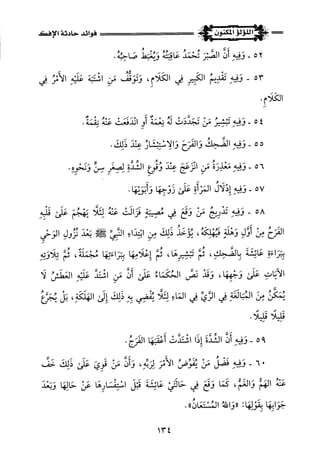 اللؤلؤ المكنون
فوائد حادثة الإفك
٥٢ - وَفِيهِ أَنَّ الصَّبْرَ تُحْمَدُ عَاقِبَتُهُ وَيُغْبَطُ صَاحِبُهُ.
٥٣ - وَفِيهِ تَقْدِيمُ الكَبِيرِ فِي الكَلَامِ، وَتَوَقُّفُ مَنِ اشْتَبَهَ عَلَيْهِ الأَمْرُ فِي
الكَلَامِ.
٥٤ - وَفِيهِ تَبْشِيرُ مَنْ تَجَدَّدَتْ لَهُ نِعْمَةٌ أَوِ انْدَفَعَتْ عَنْهُ نِقْمَةٌ.
٥٥ - وَفِيهِ الضَّحِكُ وَالفَرَحُ وَالِاسْتِبْشَارُ عِنْدَ ذَلِكَ.
٥٦ - وَفِيهِ مَعْذِرَةُ مَنِ انْزَعَجَ عِنْدَ وُقُوعِ الشِّدَّةِ لِصِغَرِ سِنٍّ وَنَحْوِهِ.
٥٧ - وَفِيهِ إِدْلَالُ المَرْأَةِ عَلَى زَوْجِهَا وَأَبَوَيْهَا.
٥٨ - وَفِيهِ تَدْرِيجُ مَنْ وَقَعَ فِي مُصِيبَةٍ فَزَالَتْ عَنْهُ لِئَلَّا يَهْجُمَ عَلَى قَلْبِهِ
الفَرَحُ مِنْ أَوَّلِ وَهْلَةٍ فَيُهْلِكَهُ، يُؤْخَذُ ذَلِكَ مِنِ ابْتِدَاءِ النَّبِيِّ ﷺ بَعْدَ نُزُولِ الوَحْيِ
بِبَرَاءَةِ عَائِشَةَ بِالضَّحِكِ، ثُمَّ تَبْشِيرِهَا، ثُمَّ إِعْلَامِهَا بِبَرَاءَتِهَا مُجْمَلَةً، ثُمَّ تِلَاوَتِهِ
الآيَاتِ عَلَى وَجْهِهَا، وَقَدْ نَصَّ الحُكَمَاءُ عَلَى أَنَّ مَنِ اشْتَدَّ عَلَيْهِ العَطَشُ لَا
يُمَكَّنُ مِنَ المُبَالَغَةِ فِي الرِّيِّ فِي المَاءِ لِئَلَّا يُفْضِيَ بِهِ ذَلِكَ إِلَى الهَلَكَةِ، بَلْ يُجَرَّعُ
قَلِيلًا قَلِيلًا.
٥٩ - وَفِيهِ أَنَّ الشِّدَّةَ إِذَا اشْتَدَّتْ أَعْقَبَهَا الفَرَجُ.
٦٠ - وَفِيهِ فَضْلُ مَنْ يُفَوِّضُ الأَمْرَ لِرَبِّهِ، وَأَنَّ مَنْ قَوِيَ عَلَى ذَلِكَ خَفَّ
عَنْهُ الهَمُّ وَالغَمُّ، كَمَا وَقَعَ فِي حَالَتَيْ عَائِشَةَ قَبْلَ اسْتِفْسَارِهَا عَنْ حَالِهَا وَبَعْدَ
جَوَابِهَا بِقَوْلِهَا: «وَاللهُ المُسْتَعَانُ».
١٣٤